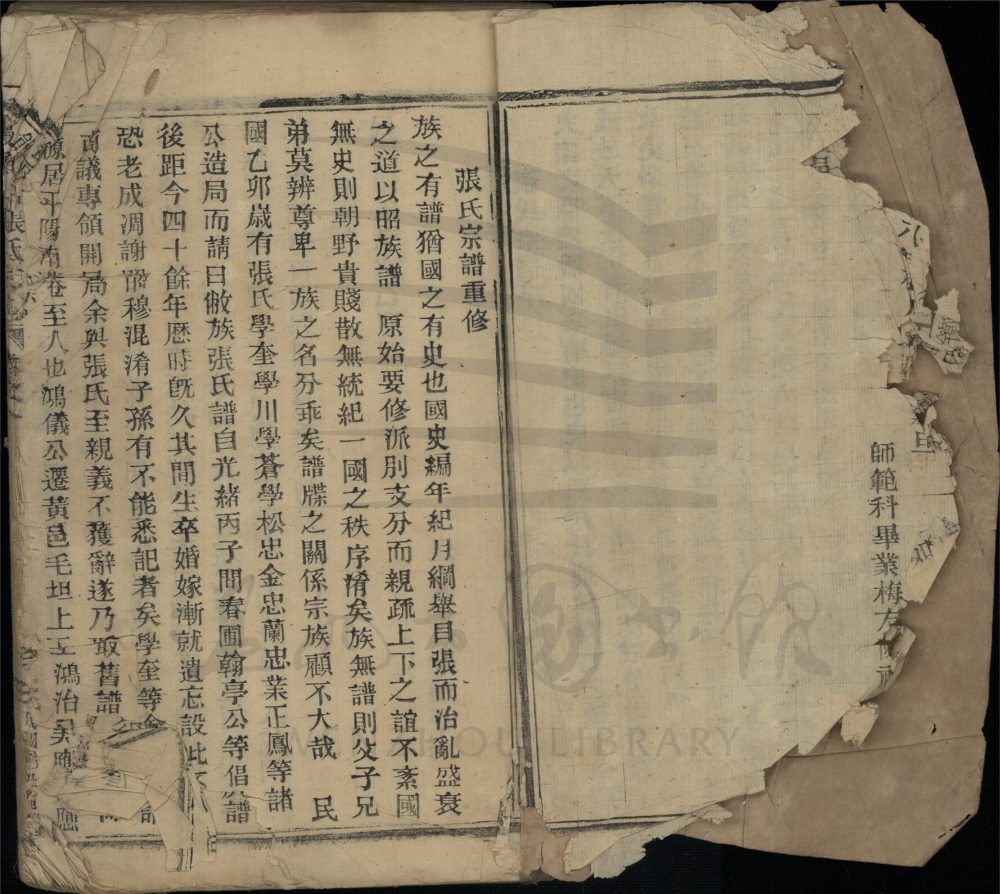 師範科畢業梅
張氏宗譜重修
族之有譜猶國之有史也國史編年紀月綱舉目張而治亂盛衰
之道以昭族譜 原始要修派別支分而親疏上下之誼不紊國
無史則朝野貴賤散無統紀一國之秩序淆矣族無譜則父子兄
弟莫辨尊卑一族之名分乖矣譜牒之關係宗族顧不大哉 民
國乙卯歲有張氏學奎學川學蒼學松忠金忠蘭忠業正鳳等諸
公造局而請曰敝族張氏譜自光緒丙子間春圃翰亭公等倡修譜
後距今四十餘年歷時旣久其間生卒婚嫁漸就遺忘設此
恐老成凋謝昭穆混淆子孫有不能悉記者矣學奎等
議專領開局余與張氏至親義不獲辭遂乃取舊譜
源居平陽 巷至人也鴻儀公遷黃邑毛坦上 鴻治
張氏
WENZHOU LIBRARY